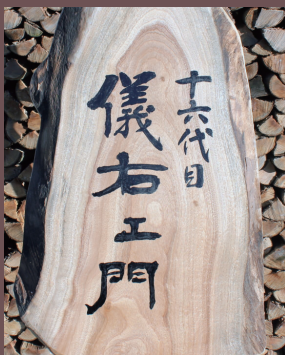 十六代目
儀右エ門